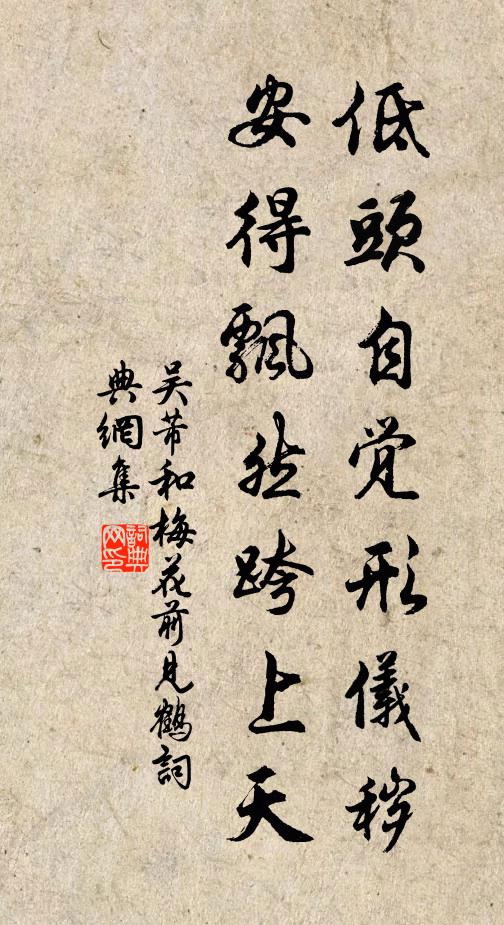 低頭自覺形儀穢
安得飄然跨上天
吴芾和梅花前見鶴詞
典網集
詞典網印